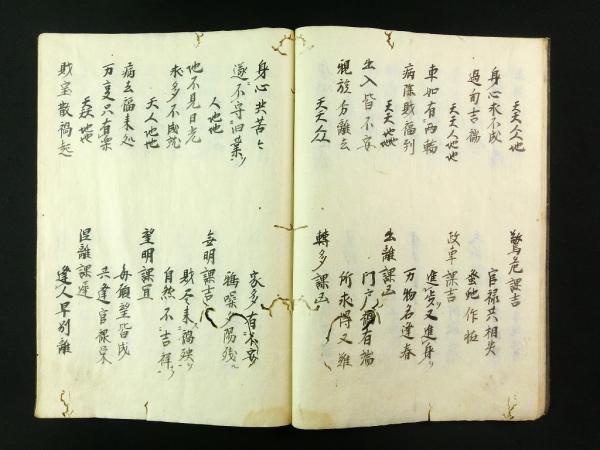 天天人地地
身心永不成
過旬吉端
天天人地地
車如有両輪
病除財福到
天天地地
出入皆不安
親族分離去
天天人人
驚危課吉
官禄共相失
他作
政車課吉
進又進身
万物名逢春
出離課凶
門戸有端
所求得又難
轉多課凶
身心共苦々
遂不守旧業
人地地
他不見日光
求多不成就
天人地地
病去福来処
万変只有栄
天天地地
財宝散禍起
家多有不安
鴉噪夕陽残
無明課吉
財不来禍殃
自然不吉祥
望明課宜
願望皆成
共逢官禄栄
涅離課遅
逢人早別離